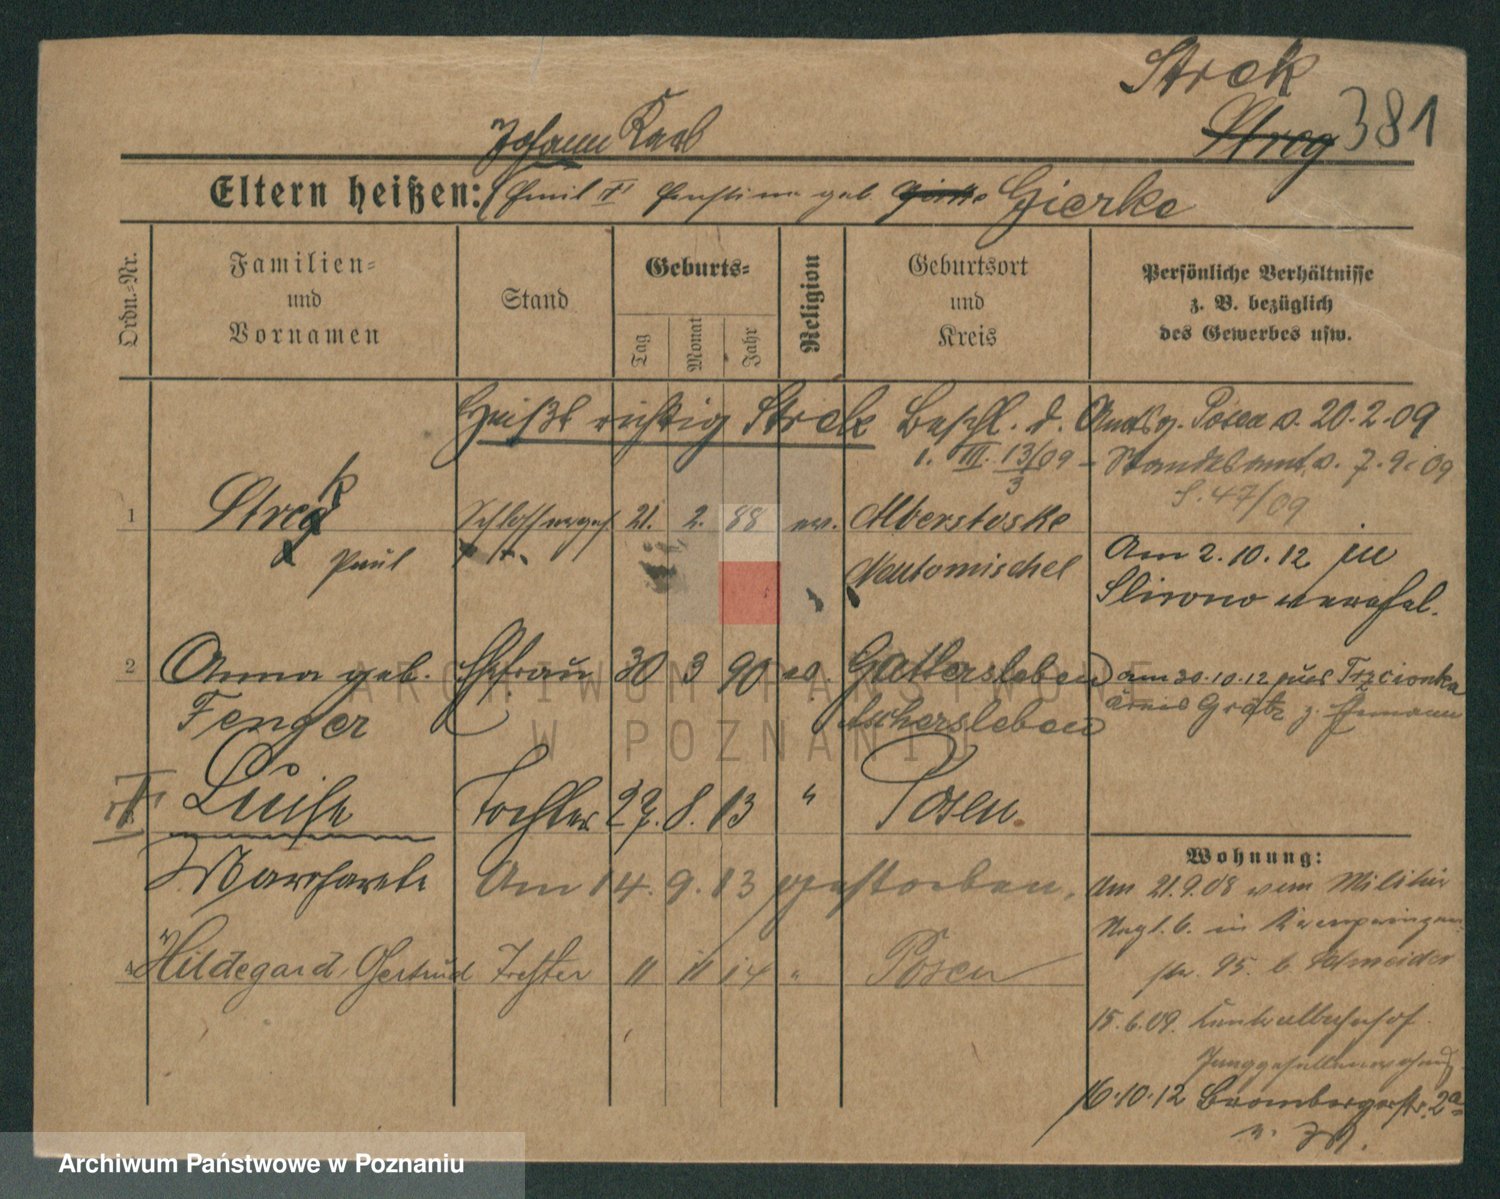 Strek
Streg 381
Johann Karl
Eltern heißen: Emil Ernstine geb. Gierke
Ordn.-Nr.
Familien-
und
Vornamen
Stand
Geburts-
Tag
Monat
Jahr
Religion
Geburtsort
und
Kreis
Persönliche Verhältnisse
z. B. bezüglich
des Gewerbes usw.
Heißt richtig Strek Beschl. d. Amtsg. Posen v. 20.2.09
III. 13/09 - Standesamt v. 7.9.09
47/09
1 Strek Schlosserges. 21. 2. 88 ev. Alberstoske
Paul Neutomischel
Am 2.10.12 in
verehel.
2 Anna geb. Ehefrau 30 3 90 ev. Gatersleben am 30.10.12 Trzcionka
Fenger Aschersleben Kreis Grätz z. Ehemann
Luise Tochter 27. 8. 13 " Posen.
Margarete Am 14. 9. 13 gestorben.
Hildegard Gertrud Tochter 11 11 14 " Posen
Wohnung:
Am 21.9.08 vom Militär
in
str. 95. b. Schneider
15.6.09. Zentralbahnhof
16.10.12 Brombergerstr. 2a
ARCHIWUM PAŃSTWOWE
W POZNANIU
Archiwum Państwowe w Poznaniu